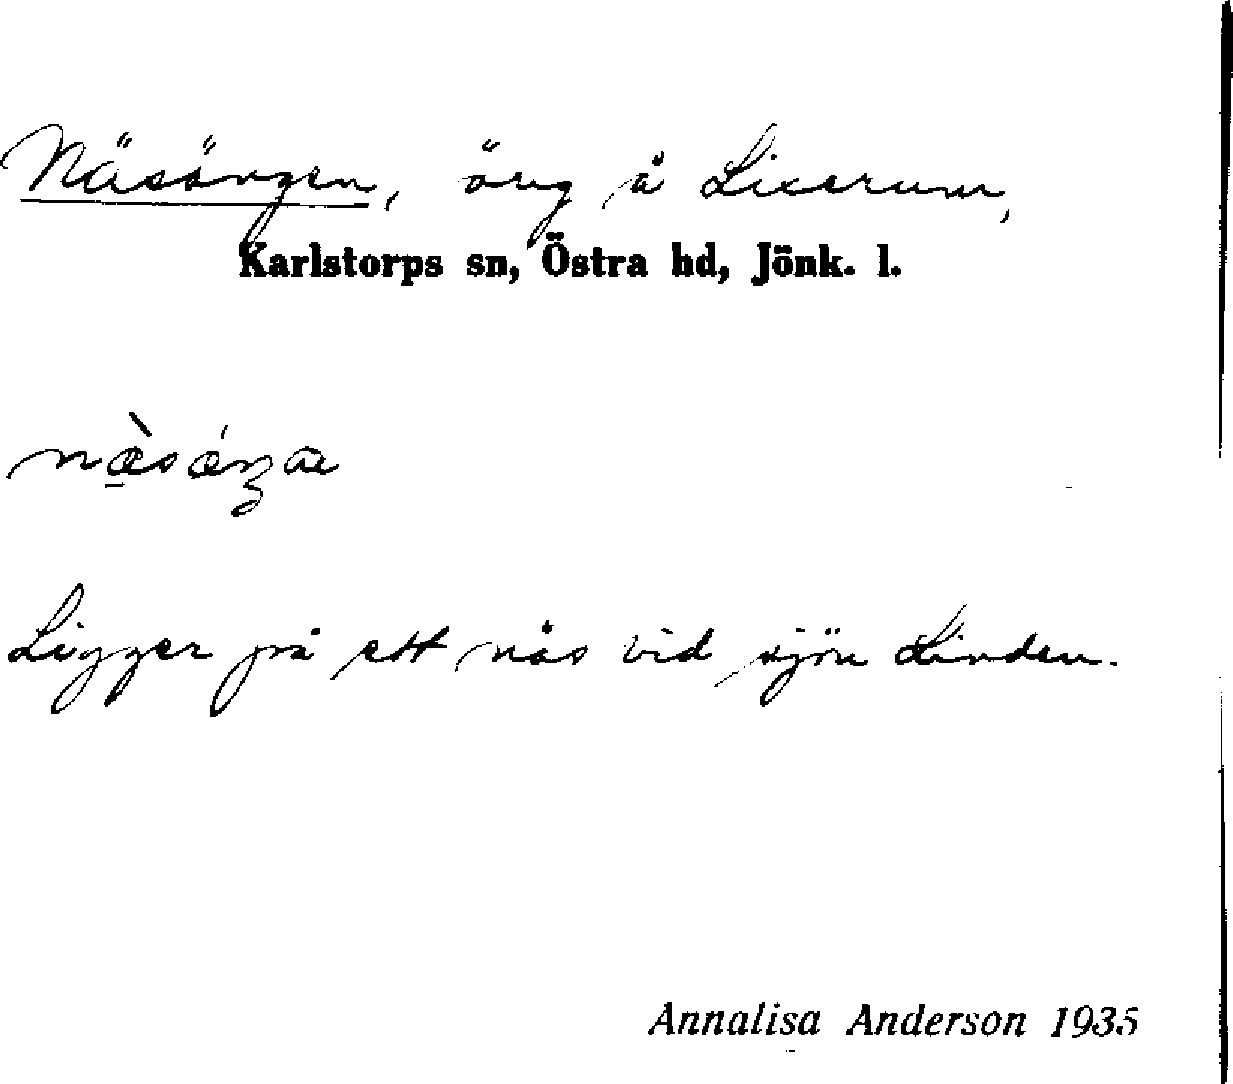 Näsängen, äng å Lixerum,
Karlstorps sn, Östra hd, Jönk. l.
Ligger på ett näs vid sjön Linden.
Annalisa Anderson 1935